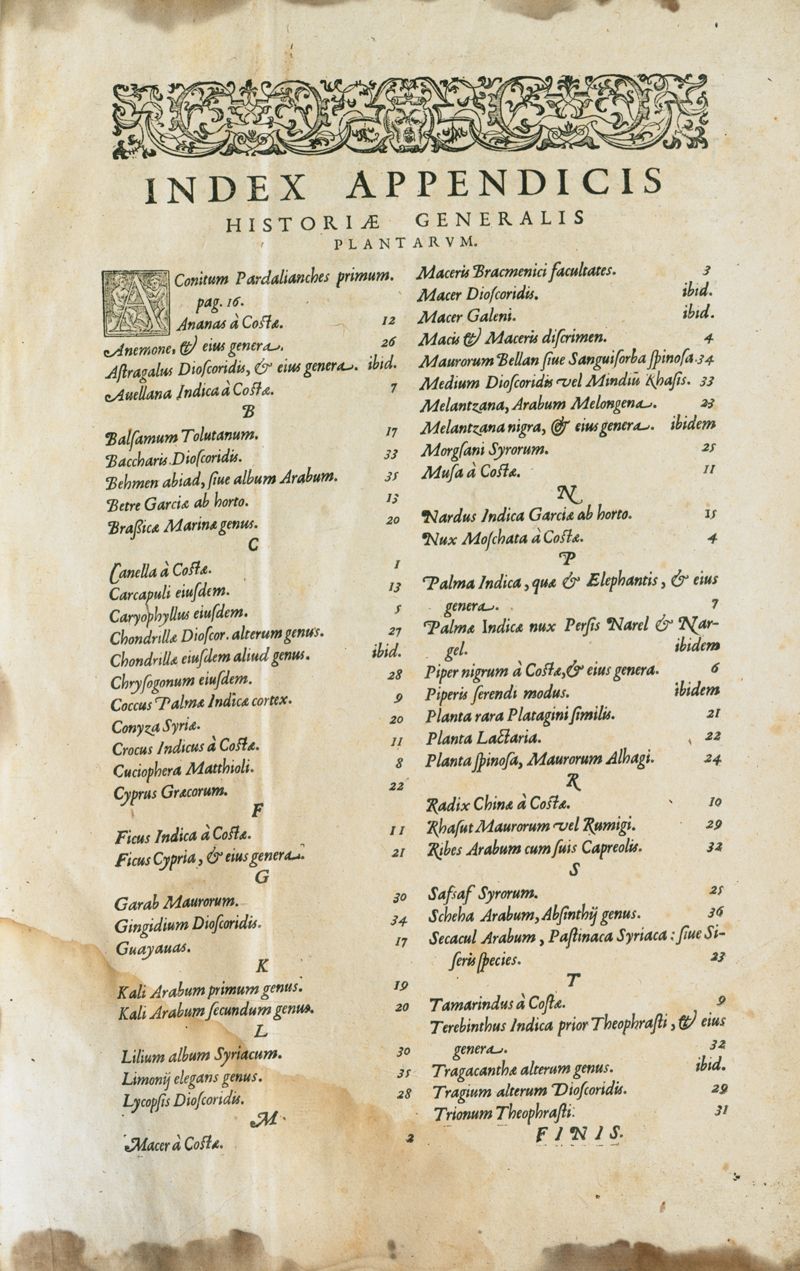 INDEX APPENDICIS
HISTORIÆ GENERALIS
PLANTARVM.
AConitum Pardalianches primum.
pag. 16.
Ananas à Costa. 12
Anemone, & eius genera. 26
Astragalus Dioscoridis, & eius genera. ibid.
Auellana Indica à Costa. 7
B
Balsamum Tolutanum. 17
Baccharis Dioscoridis. 33
Behmen abiad, siue album Arabum. 35
Betre Garciæ ab horto. 13
Braßicæ Marinæ genus. 20
C
Canella à Costa. 1
Carcapuli eiusdem. 13
Caryophyllus eiusdem. 5
Chondrillæ Dioscor. alterum genus. 27
Chondrillæ eiusdem aliud genus. ibid.
Chrysogonum eiusdem. 28
Coccus Palmæ Indicæ cortex. 9
Conyza Syriæ. 20
Crocus Indicus à Costa. 11
Cuciophera Matthioli. 8
Cyprus Græcorum. 22
F
Ficus Indica à Costa. 11
Ficus Cypria, & eius genera. 21
G
Garab Maurorum. 30
Gingidium Dioscoridis. 34
Guayauas. 17
K
Kali Arabum primum genus. 19
Kali Arabum secundum genus. 20
L
Lilium album Syriacum. 30
Limonij elegans genus. 35
Lycopsis Dioscoridis. 28
M
Macer à Costa. 2
Maceris Bracmenici facultates. 3
Macer Dioscoridis. ibid.
Macer Galeni. ibid.
Macis & Maceris discrimen. 4
Maurorum Bellan siue Sanguisorba spinosa 34
Medium Dioscoridis vel Mindiū Rhasis. 33
Melantzana, Arabum Melongena. 23
Melantzana nigra, & eius genera. ibidem
Morgsani Syrorum. 25
Musa à Costa. 11
N
Nardus Indica Garciæ ab horto. 15
Nux Moschata à Costa. 4
P
Palma Indica, quæ & Elephantis, & eius
genera. 7
Palmæ Indicæ nux Persis Narel & Nar-
gel. ibidem
Piper nigrum à Costa, & eius genera. 6
Piperis serendi modus. ibidem
Planta rara Platagini similis. 21
Planta Lactaria. 22
Planta spinosa, Maurorum Alhagi. 24
R
Radix Chinæ à Costa. 10
Rhasut Maurorum vel Rumigi. 29
Ribes Arabum cum suis Capreolis. 32
S
Safsaf Syrorum. 25
Scheha Arabum, Absinthij genus. 36
Secacul Arabum, Pastinaca Syriaca: siue Si-
seris species. 23
T
Tamarindus à Costa. 9
Terebinthus Indica prior Theophrasti, & eius
genera. 32
Tragacanthæ alterum genus. ibid.
Tragium alterum Dioscoridis. 29
Trionum Theophrasti. 31
FINIS.